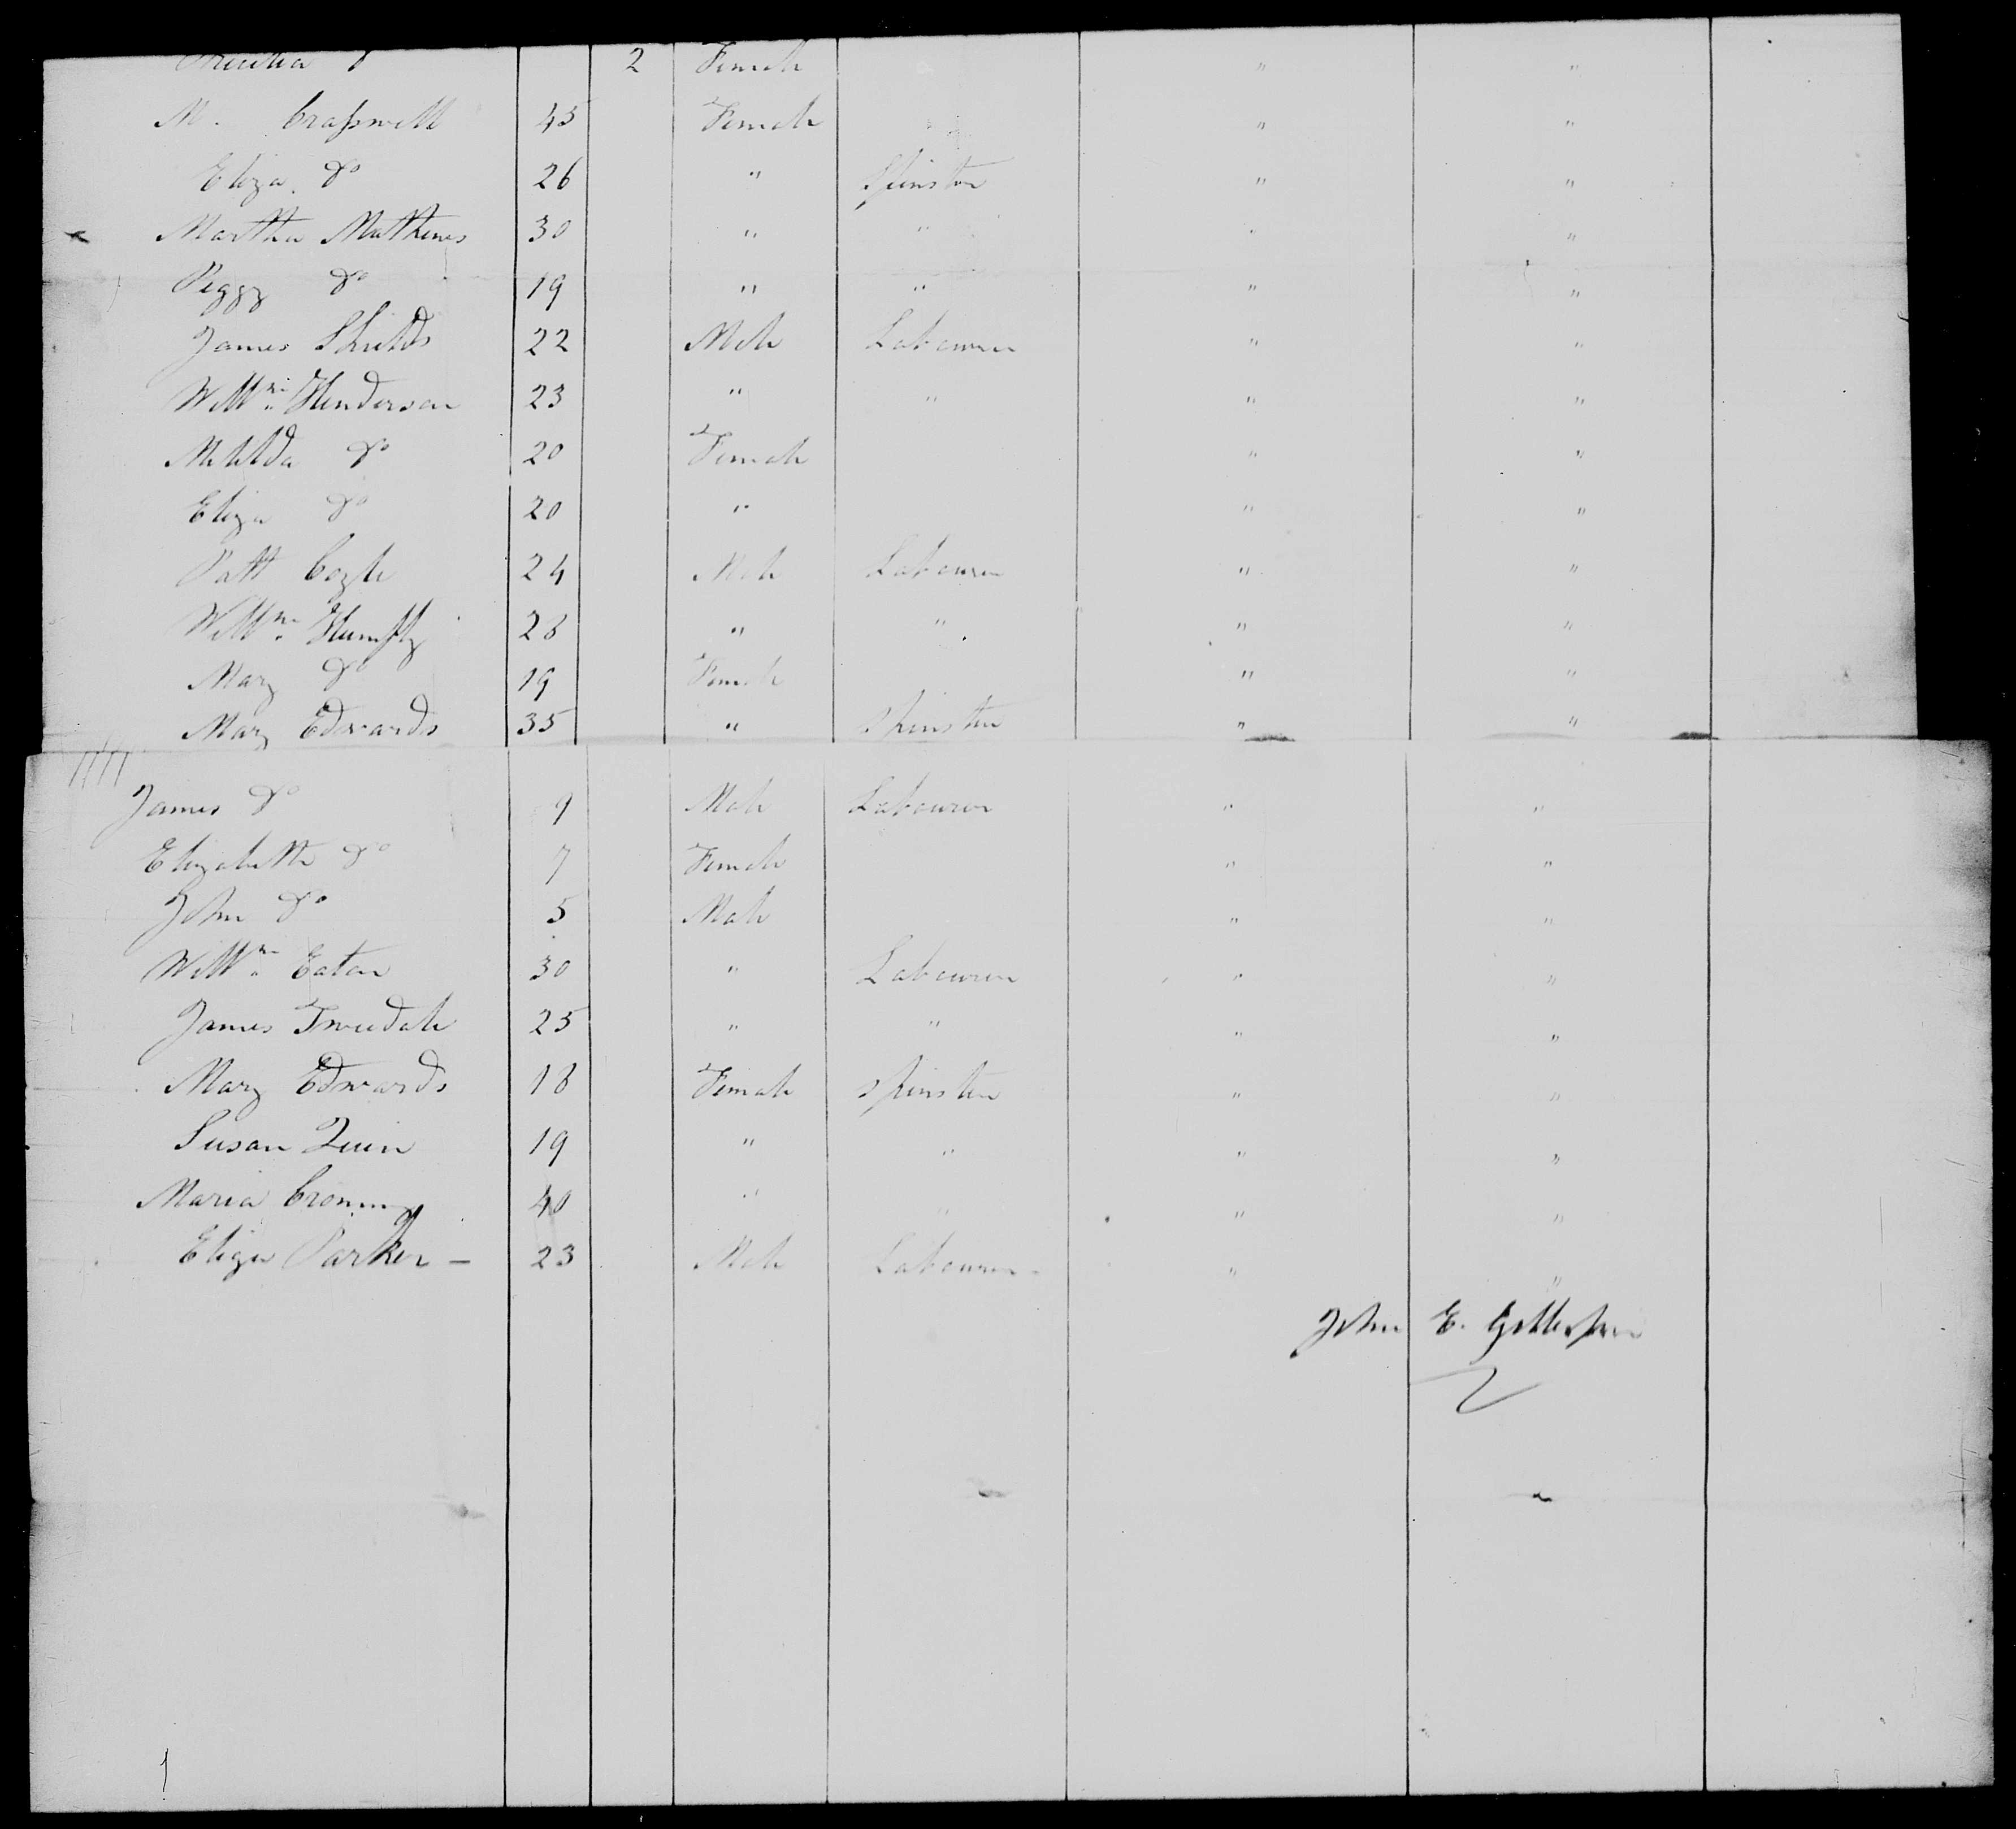 2 Female " "
M. Crasswell 45 Female " "
Eliza Do 26 " Spinster " "
Martha Mathews 30 " " " "
Peggy Do 19 " " " "
James Shields 22 Male Labourer " "
Willm Henderson 23 " " " "
Matilda Do 20 Female " "
Eliza Do 20 " " "
Patt Coyle 24 Male Labourer " "
Willm Humphy 28 " " " "
Mary Do 19 Female " "
Mary Edwards 35 " Spinster " "
James Do 9 Male Labourer " "
Elizabeth Do 7 Female " "
John Do 5 Male " "
Willm Eaton 30 " Labourer " "
James Tweedale 25 " " " "
Mary Edwards 18 Female Spinster " "
Susan Quin 19 " " " "
Maria 40 " " " "
Eliza Parker - 23 Male Labourer - " "
John E. Gillespie